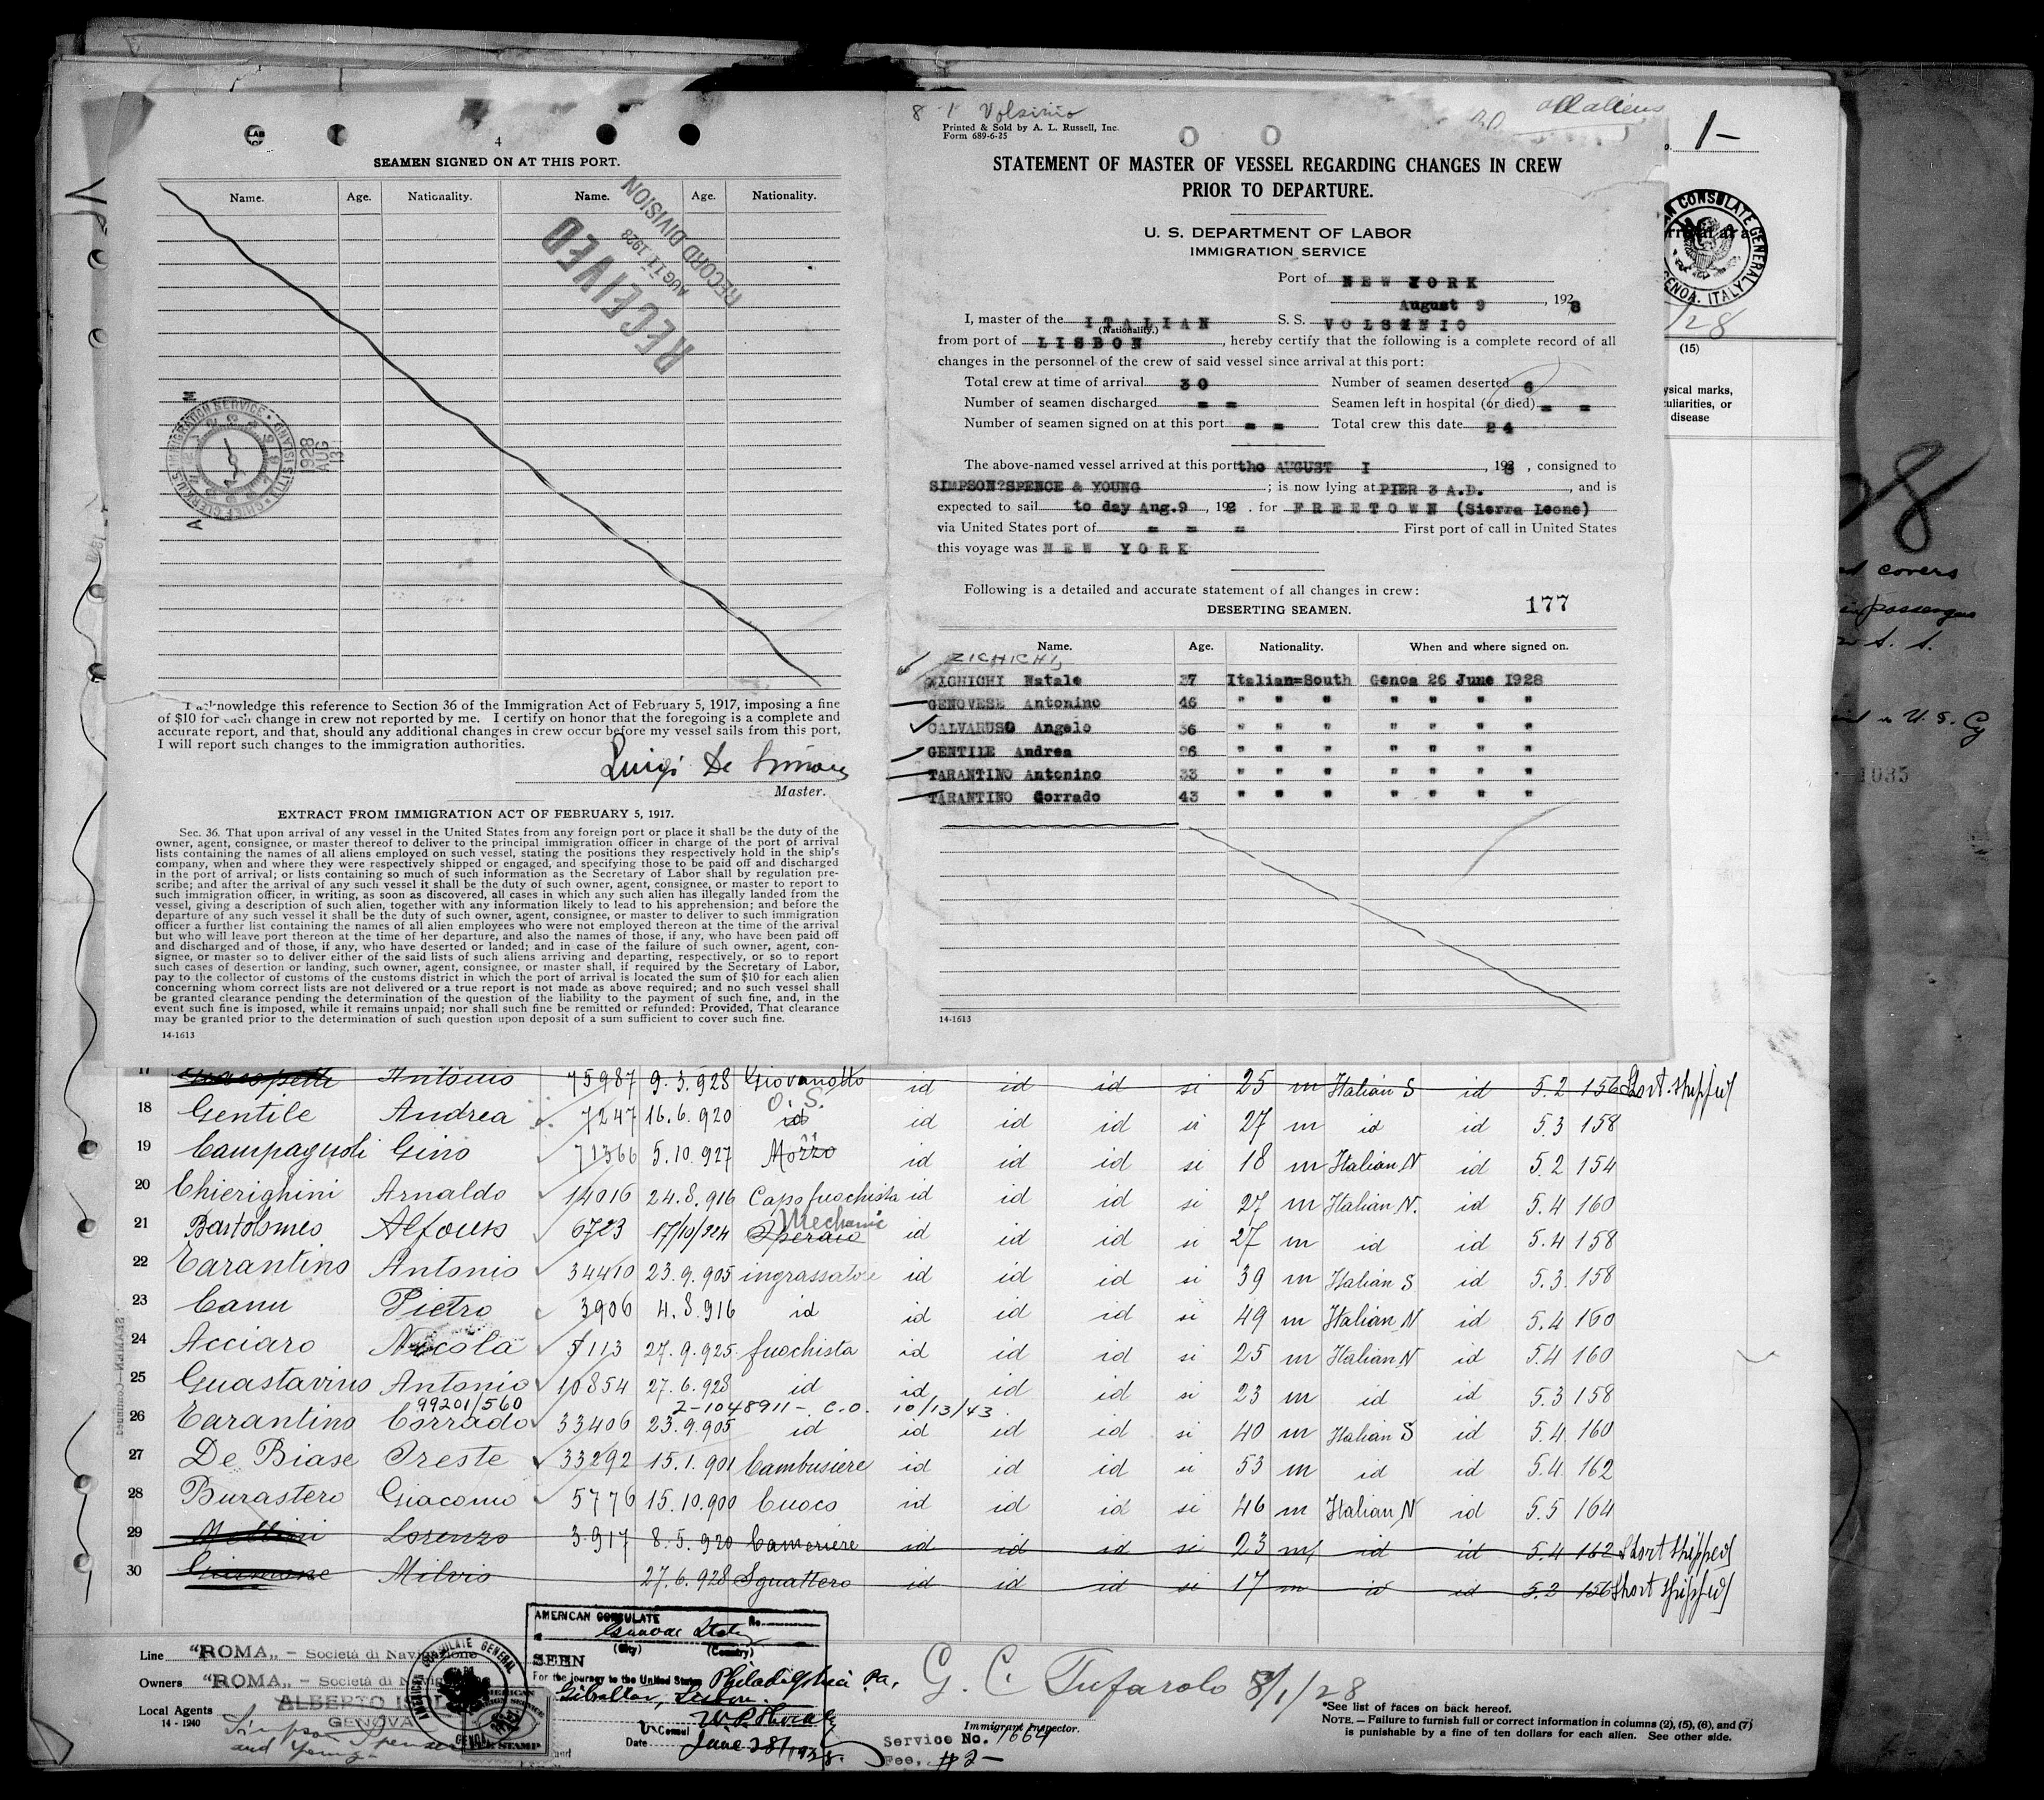 4
SEAMEN SIGNED ON AT THIS PORT.
Name. Age. Nationality. Name. Age. Nationality.
RECEIVED
AUG 11 1928
RECORD DIVISION
I acknowledge this reference to Section 36 of the Immigration Act of February 5, 1917, imposing a fine
of $10 for each change in crew not reported by me. I certify on honor that the foregoing is a complete and
accurate report, and that, should any additional changes in crew occur before my vessel sails from this port,
I will report such changes to the immigration authorities.
Luigi De Simone
Master.
EXTRACT FROM IMMIGRATION ACT OF FEBRUARY 5, 1917.
Sec. 36. That upon arrival of any vessel in the United States from any foreign port or place it shall be the duty of the
owner, agent, consignee, or master thereof to deliver to the principal immigration officer in charge of the port of arrival
lists containing the names of all aliens employed on such vessel, stating the positions they respectively hold in the ship's
company, when and where they were respectively shipped or engaged, and specifying those to be paid off and discharged
in the port of arrival; or lists containing so much of such information as the Secretary of Labor shall by regulation pre-
scribe; and after the arrival of any such vessel it shall be the duty of such owner, agent, consignee, or master to report to
such immigration officer, in writing, as soon as discovered, all cases in which any such alien has illegally landed from the
vessel, giving a description of such alien, together with any information likely to lead to his apprehension; and before the
departure of any such vessel it shall be the duty of such owner, agent, consignee, or master to deliver to such immigration
officer a further list containing the names of all alien employees who were not employed thereon at the time of the arrival
but who will leave port thereon at the time of her departure, and also the names of those, if any, who have been paid off
and discharged and of those, if any, who have deserted or landed; and in case of the failure of such owner, agent, con-
signee, or master so to deliver either of the said lists of such aliens arriving and departing, respectively, or so to report
such cases of desertion or landing, such owner, agent, consignee, or master shall, if required by the Secretary of Labor,
pay to the collector of customs of the customs district in which the port of arrival is located the sum of $10 for each alien
concerning whom correct lists are not delivered or a true report is not made as above required; and no such vessel shall
be granted clearance pending the determination of the question of the liability to the payment of such fine, and, in the
event such fine is imposed, while it remains unpaid; nor shall such fine be remitted or refunded: Provided, That clearance
may be granted prior to the determination of such question upon deposit of a sum sufficient to cover such fine.
14-1613
8 1 Volsinio
30 all aliens
Printed & Sold by A. L. Russell, Inc.
Form 689-6-25
STATEMENT OF MASTER OF VESSEL REGARDING CHANGES IN CREW
PRIOR TO DEPARTURE.
U. S. DEPARTMENT OF LABOR
IMMIGRATION SERVICE
Port of NEW YORK
August 9, 1928
I, master of the ITALIAN S. S. VOLSINIO
(Nationality.)
from port of LISBON, hereby certify that the following is a complete record of all
changes in the personnel of the crew of said vessel since arrival at this port:
Total crew at time of arrival 30 Number of seamen deserted 6
Number of seamen discharged = = Seamen left in hospital (or died) = =
Number of seamen signed on at this port = = Total crew this date 24
The above-named vessel arrived at this port the AUGUST I, 1928, consigned to
SIMPSON?SPENCE & YOUNG; is now lying at PIER 3 A.D., and is
expected to sail to day Aug.9, 192. for FREETOWN (Sierra Leone)
via United States port of = = = First port of call in United States
this voyage was NEW YORK
Following is a detailed and accurate statement of all changes in crew:
DESERTING SEAMEN. 177
Name. Age. Nationality. When and where signed on.
ZICHICHI,
XICHICHI Natale 37 Italian=South Genoa 26 June 1928
GENOVESE Antonino 46 " " " " " " "
CALVARUSO Angelo 36 " " " " " " "
GENTILE Andrea 26 " " " " " " "
TARANTINO Antonino 33 " " " " " " "
TARANTINO Corrado 43 " " " " " " "
14-1613
1-
CONSULATE GENERAL
GENOA, ITALY
/28
(15)
ysical marks,
uliarities, or
disease
28
ed covers
passengers
S. S.
in U. S. Cg
1035
17 Antonio 75987 9.3.928 Giovanotto id id id si 25 m Italian S id 5.2 156 Short shipped
O. S.
18 Gentile Andrea 7247 16.6.920 id id id id si 27 m id id 5.3 158
19 Campagnoli Gino 71366 5.10.927 Mozzo id id id si 18 m Italian N id 5.2 154
20 Chierighini Arnaldo 14016 24.8.916 Capo fuochista id id id si 27 m Italian N. id 5.4 160
Mechanic
21 Bartolomeo Alfonso 6723 17/10/924 Operaio id id id si 27 m id id 5.4 158
22 Tarantino Antonio 34410 23.9.905 ingrassatore id id id si 39 m Italian S id 5.3 158
23 Canu Pietro 3906 4.8.916 id id id id si 49 m Italian N id 5.4 160
24 Acciaro Nicola 5113 27.9.925 fuochista id id id si 25 m Italian N id 5.4 160
25 Guastavino Antonio 10854 27.6.928 id id id id si 23 m id id 5.3 158
99201/560 2-1048911- C.O. 10/13/43
26 Tarantino Corrado 33406 23.9.905 id id id id si 40 m Italian S id 5.4 160
27 De Biase Oreste 33292 15.1.901 Cambusiere id id id si 53 m id id 5.4 162
28 Burastero Giacomo 5776 15.10.900 Cuoco id id id si 46 m Italian N id 5.5 164
29 Lorenzo 3917 8.5.920 Cameriere id id id si 23 m id id 5.4 162 Short shipped
30 Milvio 27.6.928 Sguattero id id id si 17 m id id 5.2 156 Short shipped
Line "ROMA„ - Società di Navigazione
Owners "ROMA„ - Società di Navig
ALBERTO
Local Agents GENOVA
14-1940
Simpson Spence
and Young
AMERICAN CONSULATE No.
Genova Italy
(City) (Country)
SEEN
For the journey to the United States Philadelphia Pa.
Gibraltar, Lisbon.
Vice Consul
Date June 28/1928.
G. C. Tufarolo 8/1/28
Immigrant Inspector.
Service No. 1664
Fee, #2-
*See list of races on back hereof.
NOTE.—Failure to furnish full or correct information in columns (2), (5), (6), and (7)
is punishable by a fine of ten dollars for each alien. See other side.